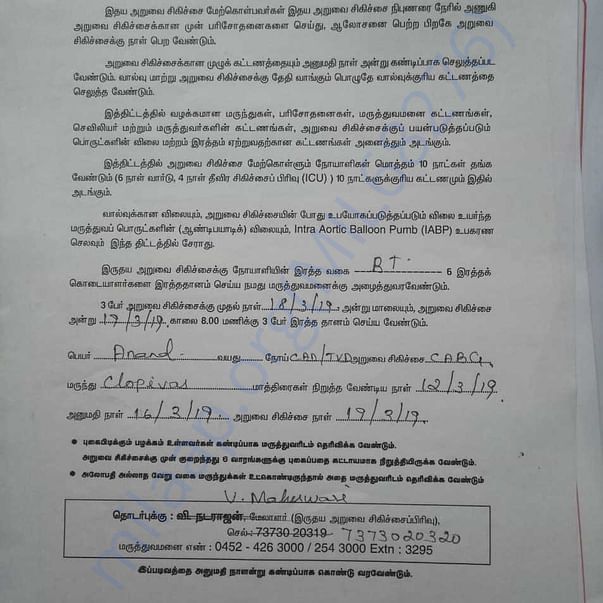 இதய அறுவை சிகிச்சை மேற்கொள்பவர்கள் இதய அறுவை சிகிச்சை நிபுணரை நேரில் அணுகி
அறுவை சிகிச்சைக்கான முன் பரிசோதனைகளை செய்து, ஆலோசனை பெற்ற பிறகே அறுவை
சிகிச்சைக்கு நாள் பெற வேண்டும்.
அறுவை சிகிச்சைக்கான முழுக் கட்டணத்தையும் அனுமதி நாள் அன்று கண்டிப்பாக செலுத்தப்பட
வேண்டும். வால்வு மாற்று அறுவை சிகிச்சைக்கு தேதி வாங்கும் பொழுதே வால்வுக்குரிய கட்டணத்தை
செலுத்த வேண்டும்.
இத்திட்டத்தில் வழக்கமான மருந்துகள், பரிசோதனைகள், மருத்துவமனை கட்டணங்கள்,
செவிலியர் மற்றும் மருத்துவர்களின் கட்டணங்கள், அறுவை சிகிச்சைக்குப் பயன்படுத்தப்படும்
பொருட்களின் விலை மற்றம் இரத்தம் ஏற்றுவதற்கான கட்டணங்கள் அனைத்தும் அடங்கும்.
இத்திட்டத்தில் அறுவை சிகிச்சை மேற்கொள்ளும் நோயாளிகள் மொத்தம் 10 நாட்கள் தங்க
வேண்டும் (6 நாள் வார்டு, 4 நாள் தீவிர சிகிச்சைப் பிரிவு (ICU) ) 10 நாட்களுக்குரிய கட்டணமும் இதில்
அடங்கும்.
வால்வுக்கான விலையும், அறுவை சிகிச்சையின் போது உபயோகப்படுத்தப்படும் விலை உயர்ந்த
மருத்துவப் பொருட்களின் (ஆண்டிபயாடிக்) விலையும், Intra Aortic Balloon Pumb (IABP) உபகரண
செலவும் இந்த திட்டத்தில் சேராது.
இருதய அறுவை சிகிச்சைக்கு நோயாளியின் இரத்த வகை BT. 6 இரத்தக்
கொடையாளர்களை இரத்ததானம் செய்ய நமது மருத்துவமனைக்கு அழைத்துவரவேண்டும்.
3 பேர் அறுவை சிகிச்சைக்கு முதல் நாள் 18/3/19 அன்று மாலையும், அறுவை சிகிச்சை
அன்று 19/3/19 காலை 8.00 மணிக்கு 3 பேர் இரத்த தானம் செய்ய வேண்டும்.
பெயர் Anand வயது நோய் CAD/TVD அறுவை சிகிச்சை CABG
மருந்து Clopivas மாத்திரைகள் நிறுத்த வேண்டிய நாள் 12/3/19.
அனுமதி நாள் 16/3/19. அறுவை சிகிச்சை நாள் 19/3/19.
• புகைபிடிக்கும் பழக்கம் உள்ளவர்கள் கண்டிப்பாக மருத்துவரிடம் தெரிவிக்க வேண்டும்.
அறுவை சிகிச்சைக்கு முன் குறைந்தது 6 வாரங்களுக்கு புகைப்பதை கட்டாயமாக நிறுத்தியிருக்க வேண்டும்.
• அலோபதி அல்லாத வேறு வகை மருந்துக்கள் உட்கொண்டிருந்தால் அதை மருத்துவரிடம் தெரிவிக்க வேண்டும்
V. Maheswari
தொடர்புக்கு : வி. நடராஜன், மேலாளர் (இருதய அறுவை சிகிச்சைப்பிரிவு),
செல்: 73730 20319 7373020320
மருத்துவமனை எண் : 0452 - 426 3000 / 254 3000 Extn : 3295
இப்படிவத்தை அனுமதி நாளன்று கண்டிப்பாக கொண்டு வரவேண்டும்.